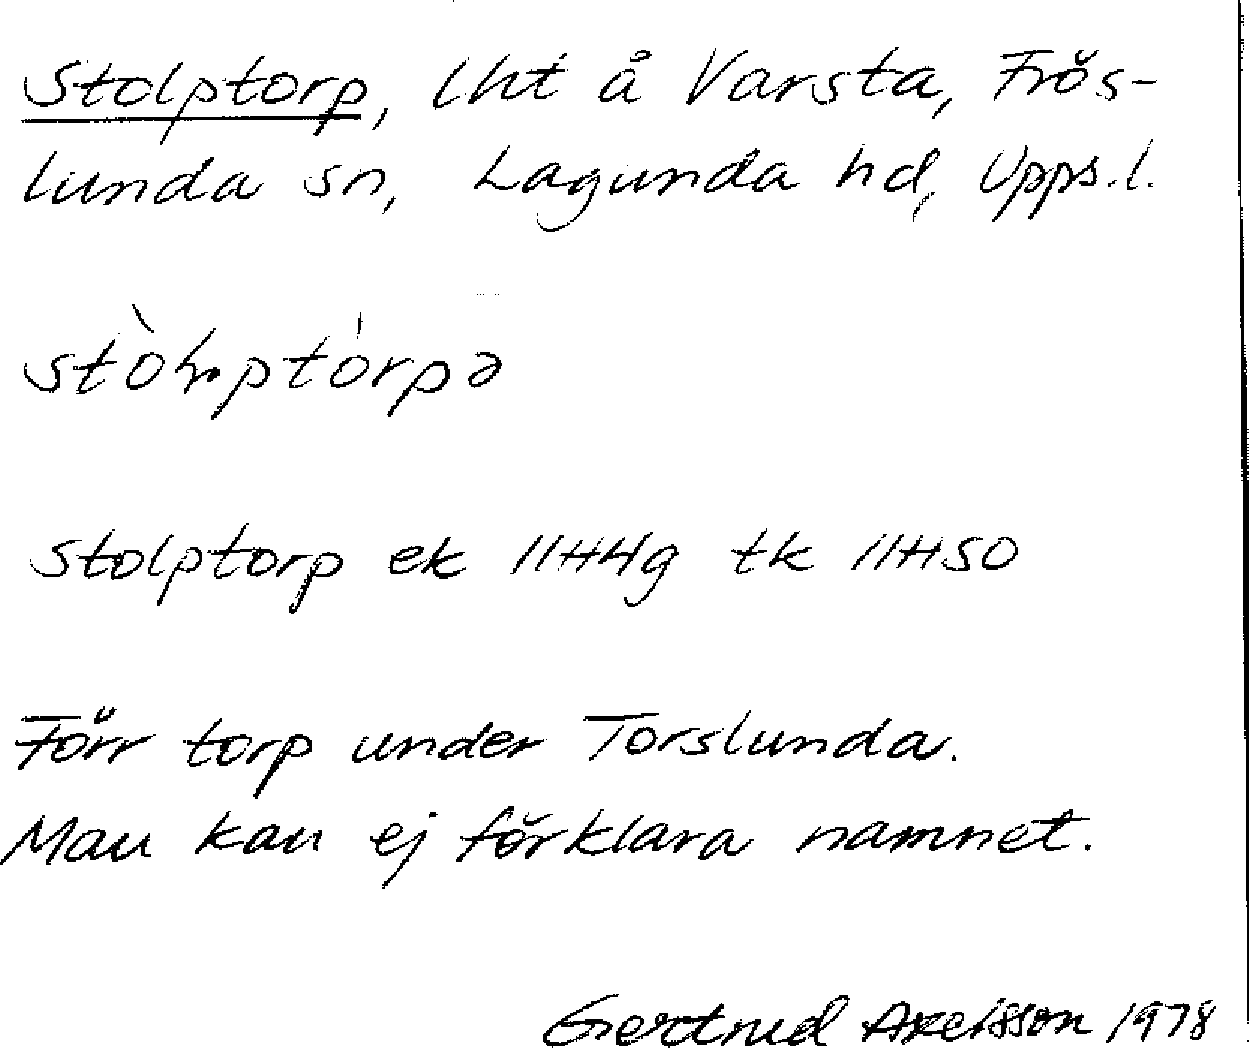 Stolptorp, lht å Varsta, Frös-
lunda sn, Lagunda hd, Upps.l.
stòɬptórpə
Stolptorp ek 11H4g tk 11H SO
Förr torp under Torslunda.
Man kan ej förklara namnet.
Gertrud Axelsson 1978